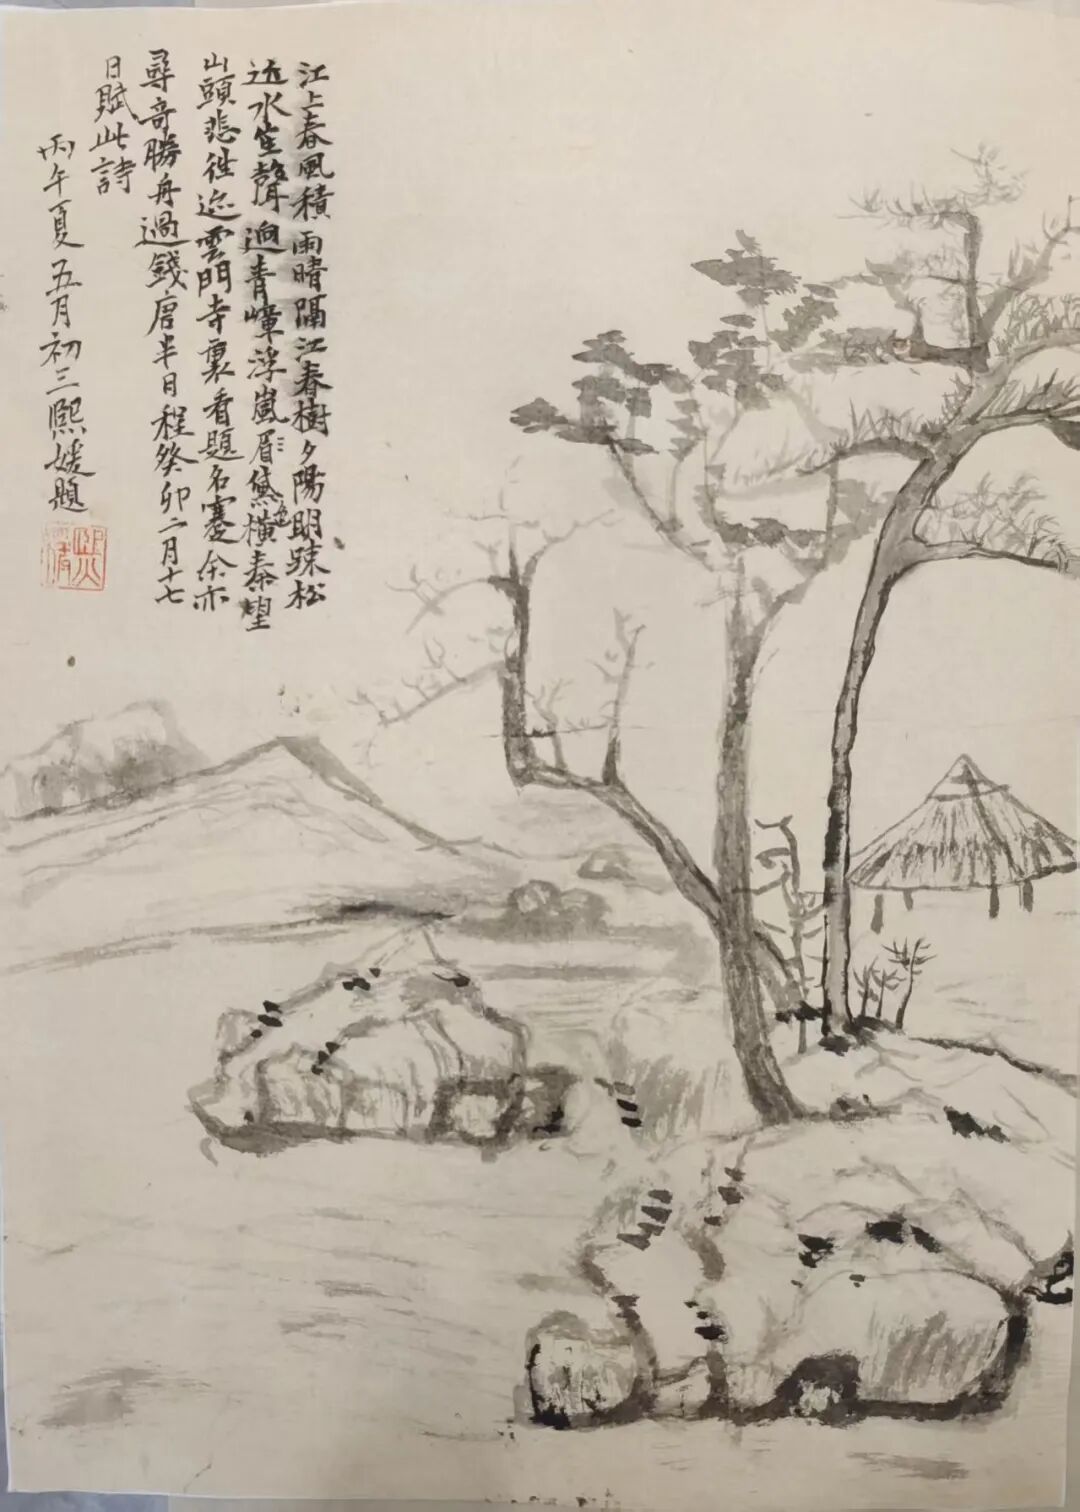 江上春風積雨晴隔江春樹夕陽明疎松
近水笙聲迥青嶂浮嵐眉黛色橫秦望
山頭悲往迹雲門寺裏看題名蹇余亦
尋奇勝舟過錢唐半日程癸卯二月十七
日賦此詩
丙午夏五月初三熙媛題